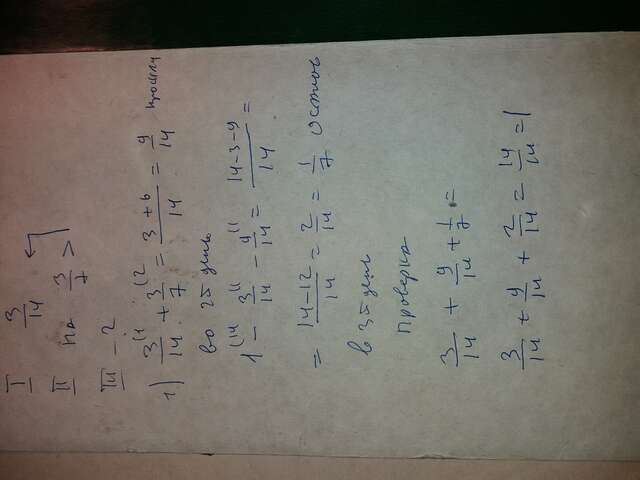 I 3/14
II на 3/7 >
III - ?
1) 3/14 + 3/7 = 3+6/14 = 9/14 прошли
во 2й день
1 - 3/14 - 9/14 = 14-3-9/14 =
= 14-12/14 = 2/14 = 1/7 Остаток
в 3й день
Проверка
3/14 + 9/14 + 1/7 =
3/14 + 9/14 + 2/14 = 14/14 = 1